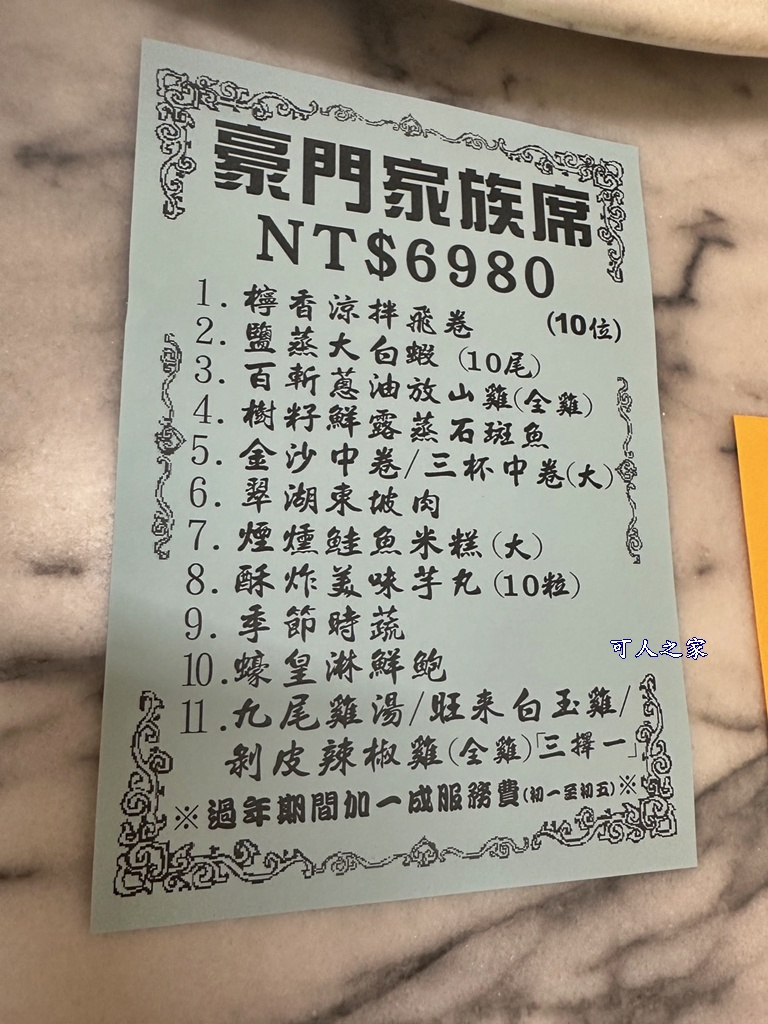 豪門家族席
NT$6980
(10位)
1.檸香涼拌飛卷
2.鹽蒸大白蝦(10尾)
3.百斬蔥油放山雞(全雞)
4.樹籽鮮露蒸石斑魚
5.金沙中卷/三杯中卷(大)
6.翠湖東坡肉
7.煙燻鮭魚米糕(大)
8.酥炸美味芋丸(10粒)
9.季節時蔬
10.蠔皇淋鮮鮑
11.九尾雞湯/旺来白玉雞/
剝皮辣椒雞(全雞)「三擇一」
※過年期間加一成服務費(初一至初五)※
可人之家